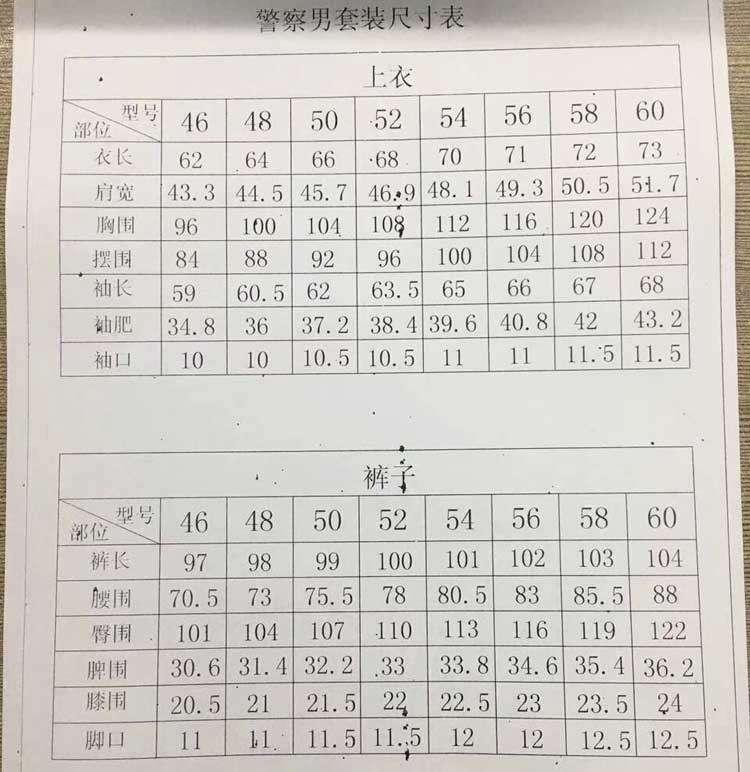 警察男套装尺寸表
上衣
型号 部位 46 48 50 52 54 56 58 60
衣长 62 64 66 68 70 71 72 73
肩宽 43.3 44.5 45.7 46.9 48.1 49.3 50.5 51.7
胸围 96 100 104 108 112 116 120 124
摆围 84 88 92 96 100 104 108 112
袖长 59 60.5 62 63.5 65 66 67 68
袖肥 34.8 36 37.2 38.4 39.6 40.8 42 43.2
袖口 10 10 10.5 10.5 11 11 11.5 11.5
裤子
型号 部位 46 48 50 52 54 56 58 60
裤长 97 98 99 100 101 102 103 104
腰围 70.5 73 75.5 78 80.5 83 85.5 88
臀围 101 104 107 110 113 116 119 122
脾围 30.6 31.4 32.2 33 33.8 34.6 35.4 36.2
膝围 20.5 21 21.5 22 22.5 23 23.5 24
脚口 11 11 11.5 11.5 12 12 12.5 12.5